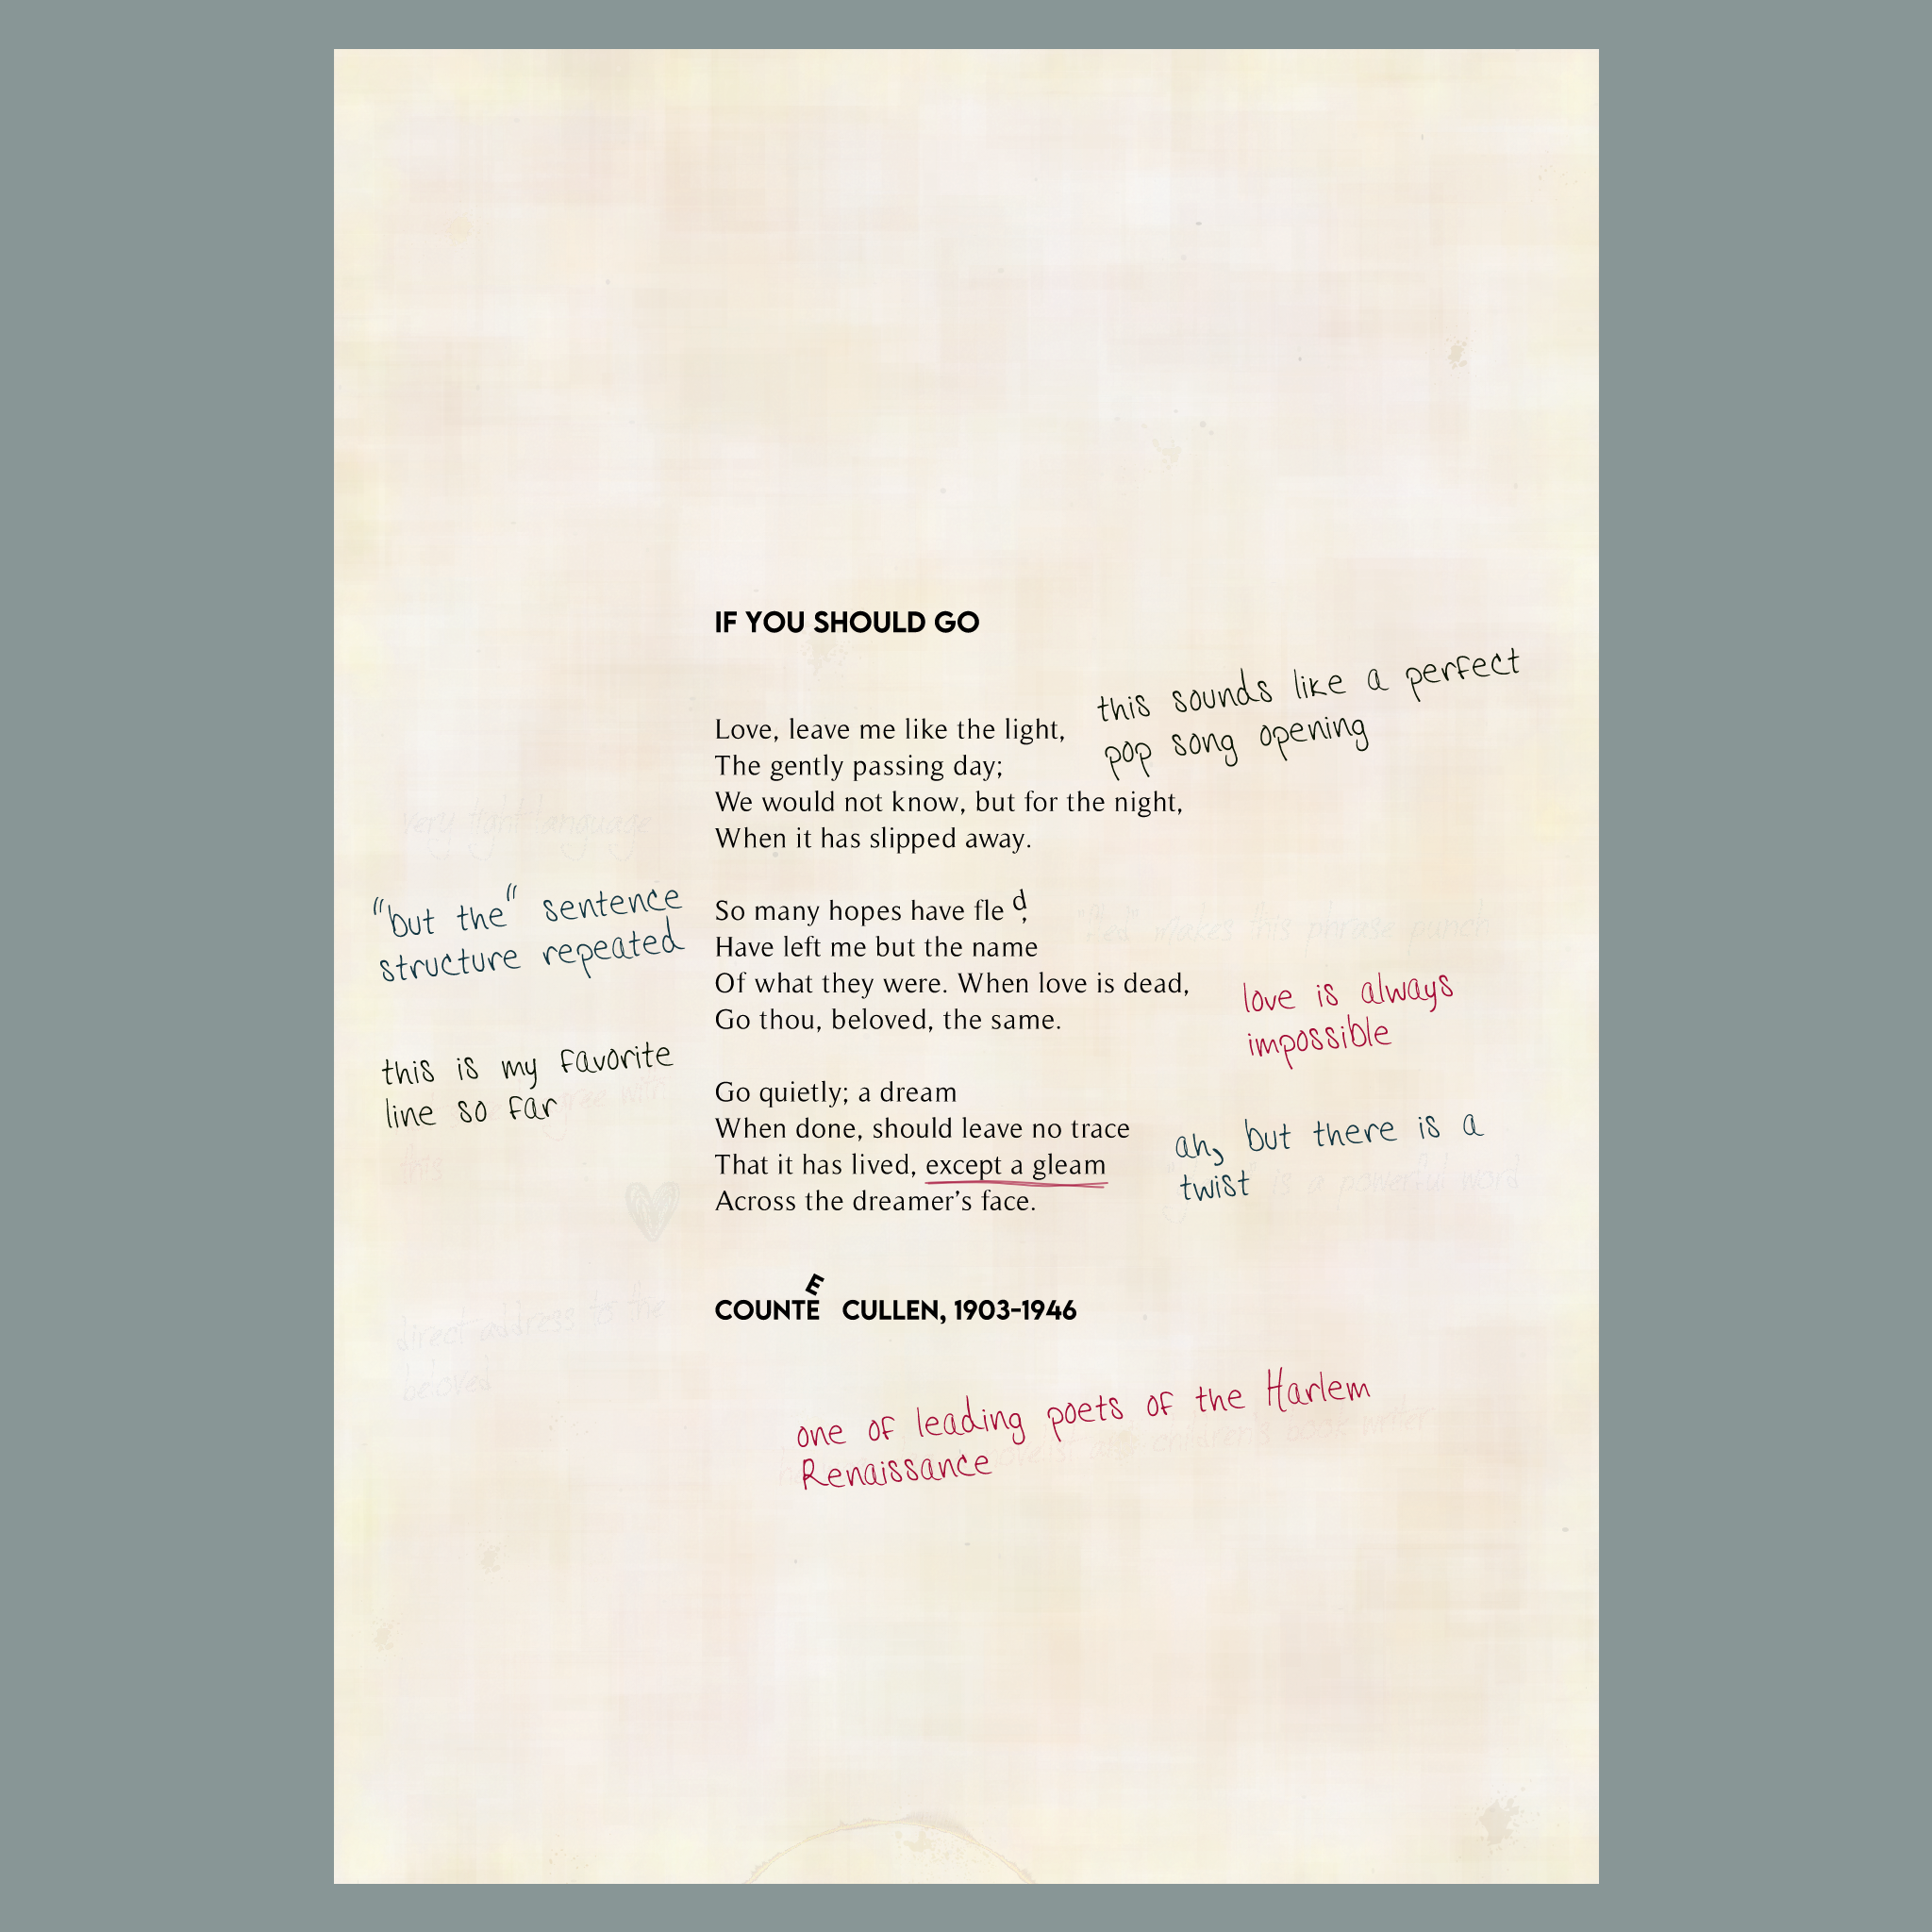 IF YOU SHOULD GO
this sounds like a perfect
pop song opening
Love, leave me like the light,
The gently passing day;
We would not know, but for the night,
When it has slipped away.
very tight language
"but the" sentence
structure repeated
So many hopes have fled,
Have left me but the name
Of what they were. When love is dead,
Go thou, beloved, the same.
"fled" makes this phrase punch
love is always
impossible
this is my favorite
line so far
agree with
this
Go quietly; a dream
When done, should leave no trace
That it has lived, except a gleam
Across the dreamer's face.
ah, but there is a
twist
is a powerful word
COUNTEE CULLEN, 1903-1946
direct address to the
beloved
one of leading poets of the Harlem
Renaissance
children's book writer